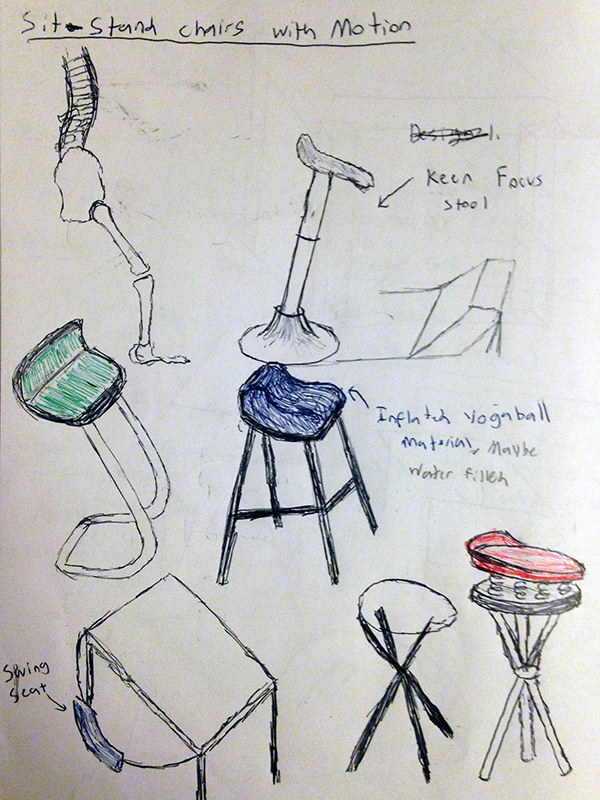 Sit-Stand chairs with Motion
Design 1.
Keen Focus
Stool
Inflated yogaball
material. Maybe
water filled
Swing
Seat